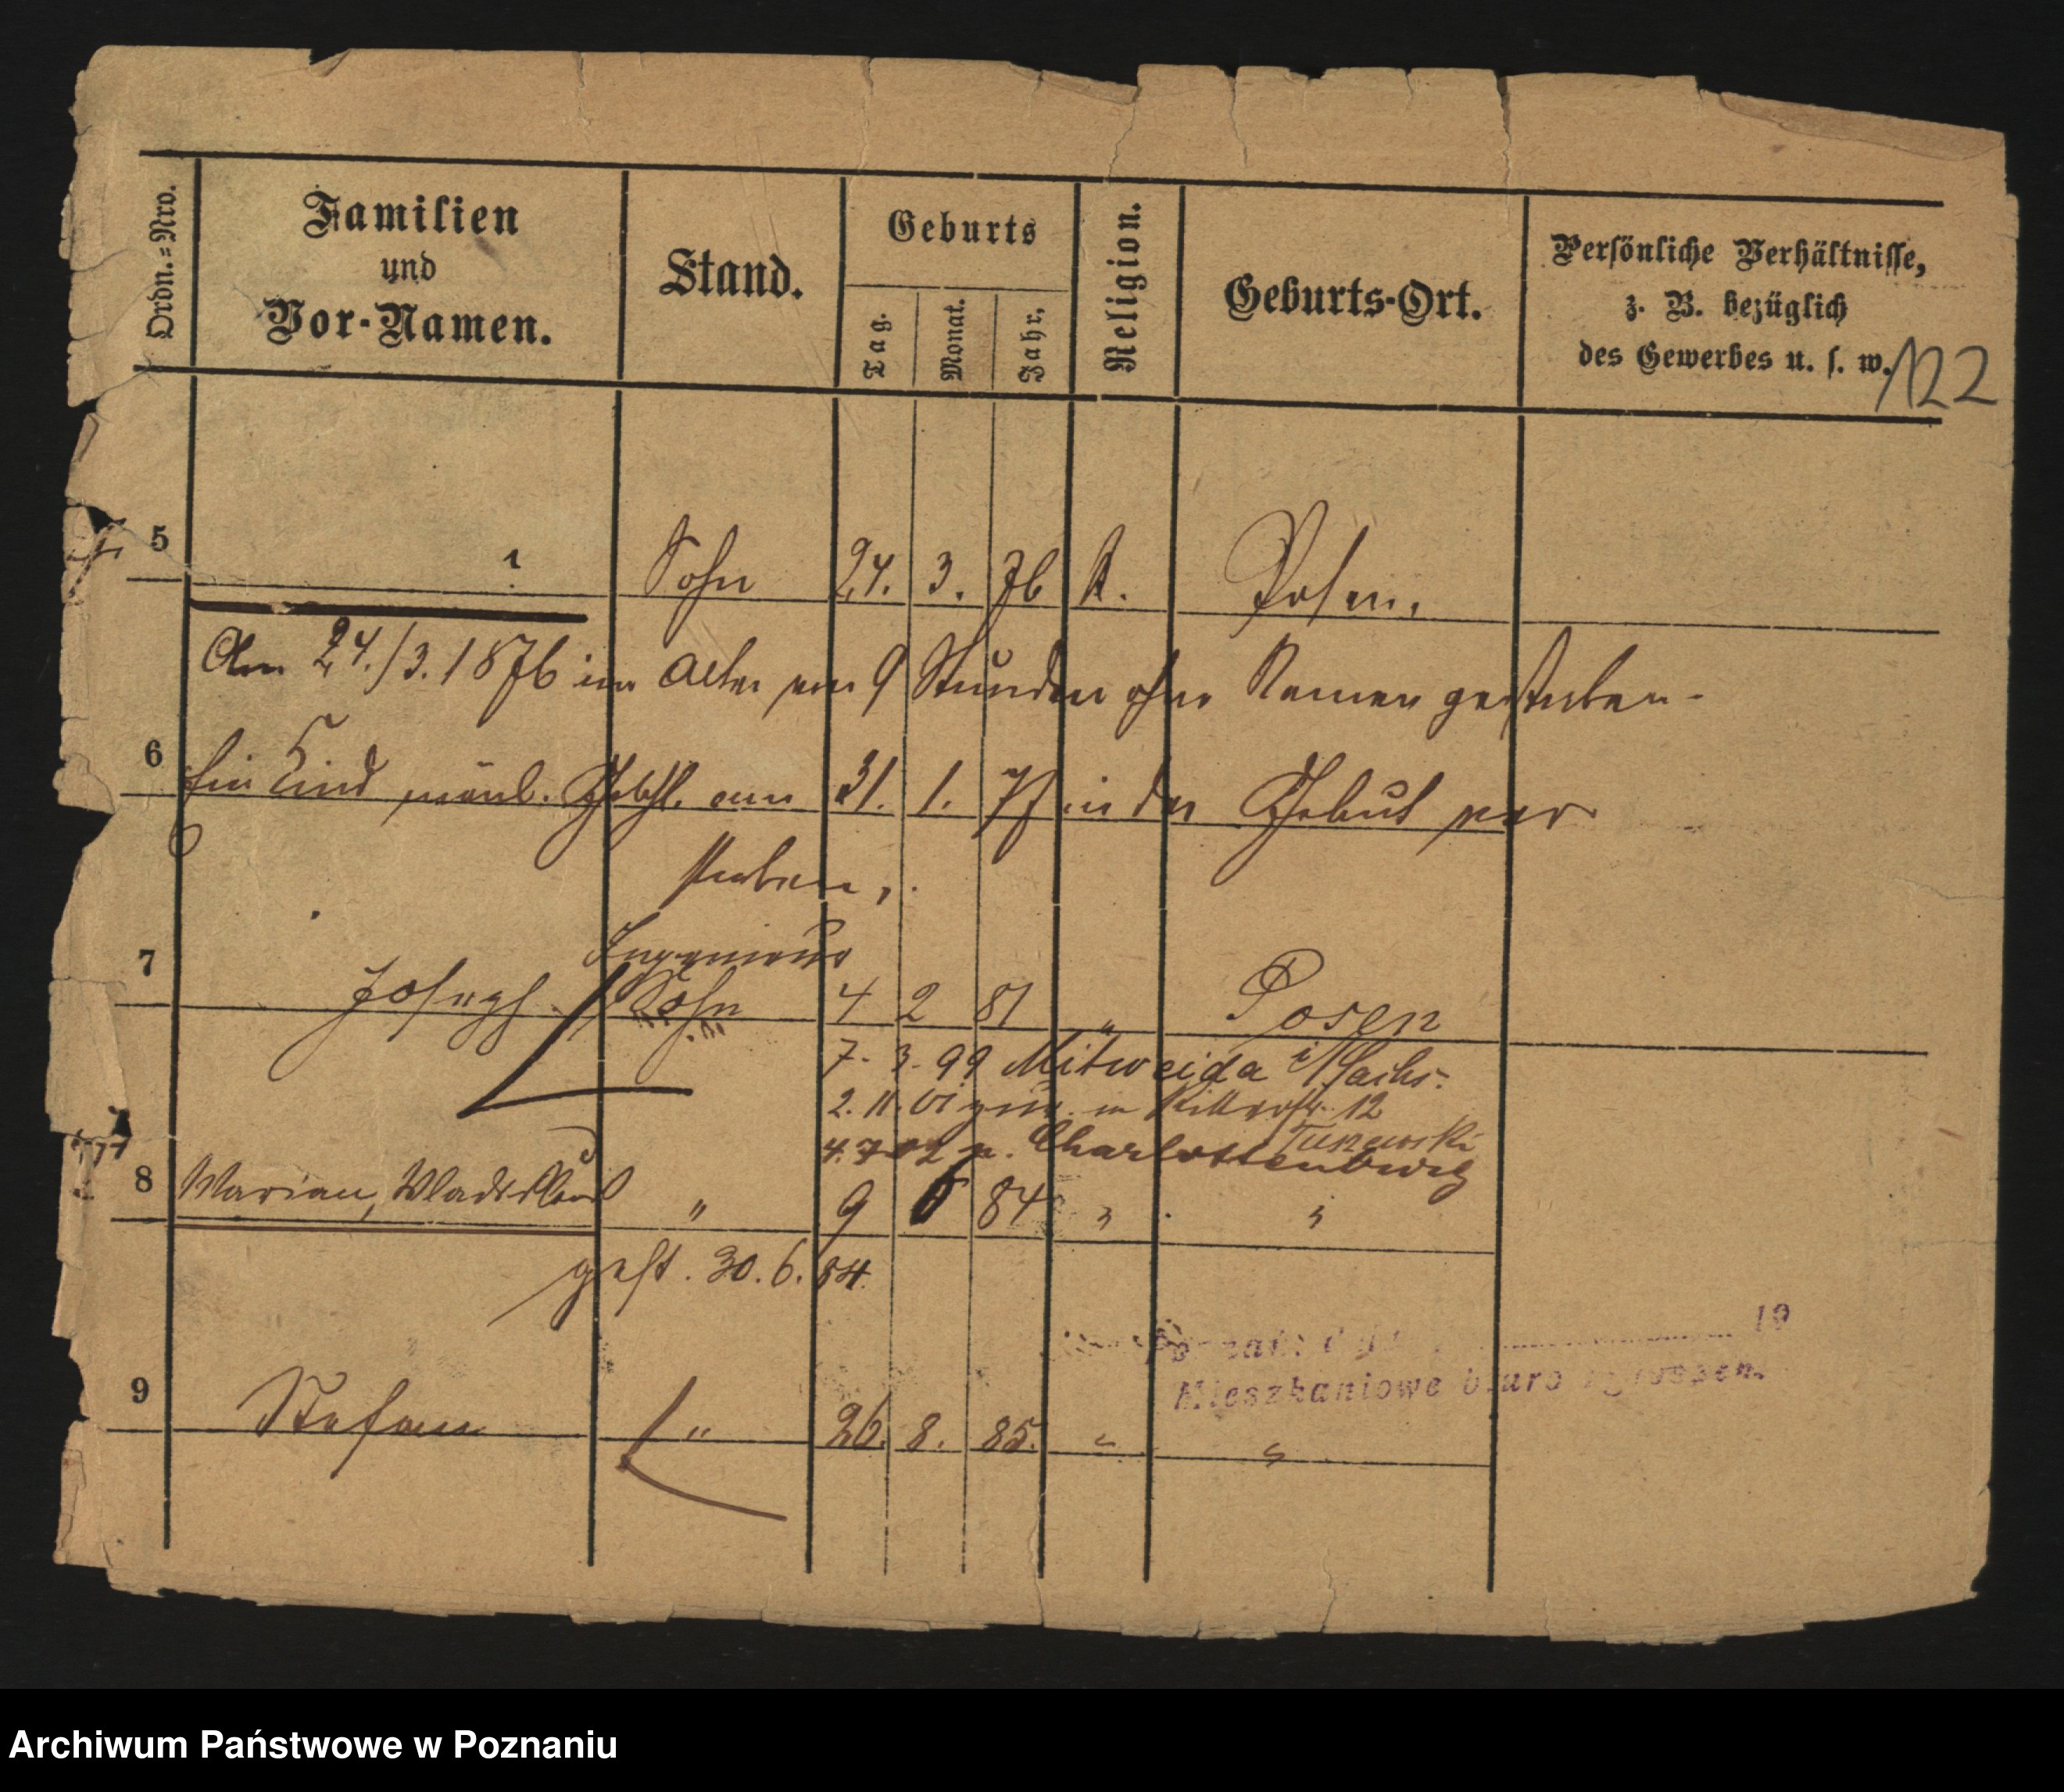 Ordn.=Nro.
Familien
und
Vor-Namen.
Stand.
Geburts
Tag.
Monat.
Jahr.
Religion.
Geburts-Ort.
Persönliche Verhältnisse,
z. B. bezüglich
des Gewerbes u. s. w.
122
5 ? Sohn 24. 3. 76 K. Posen.
Am 24./3. 1876 im Alter von 9 Stunden ohne Namen gestorben.
6 Ein Kind männl. Geschl. am 31. 1. in der Geburt ver
storben.
Ingenieur
7 Joseph Sohn 4 2 81 " Posen
7. 3. 99 Mitweida i/Sachs.
2. 11. 01 zur. in Ritterstr. 12
Turowski
4. 7 02 n. Charlottenburg
8 Marian, Wladislaus " 9 6 84 " "
gest. 30. 6. 84.
19
9 Stefan " 26. 8. 85. " "
Mieszkaniowe biuro
Archiwum Państwowe w Poznaniu